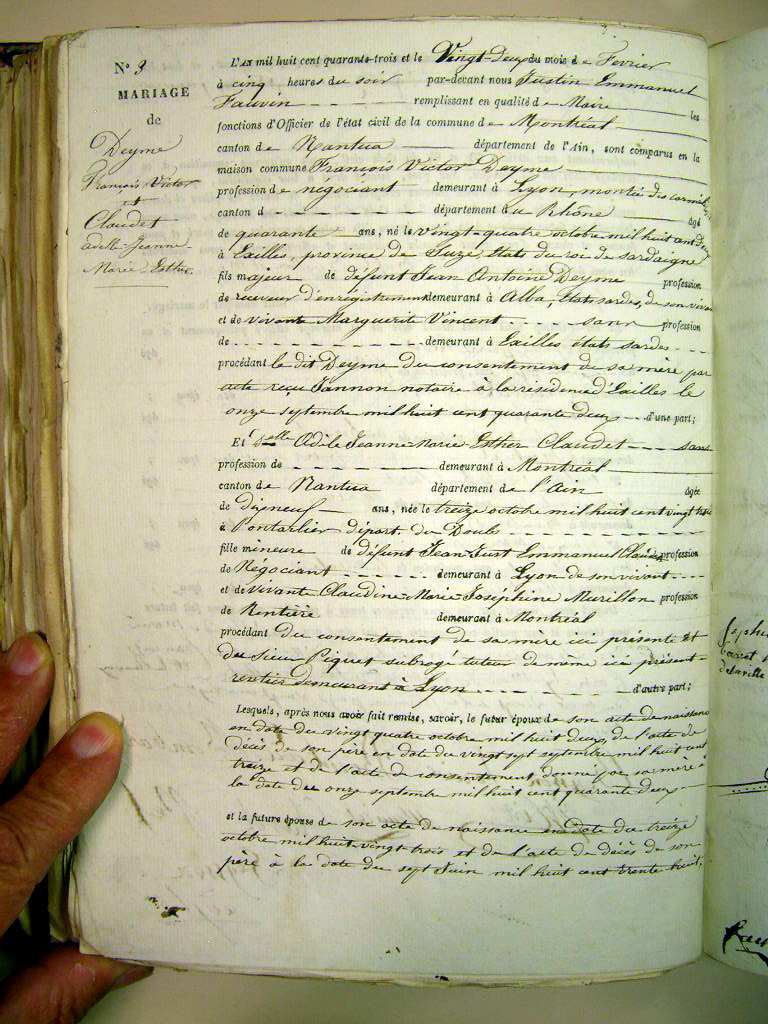 N° 3
MARIAGE
de
Deyme
François Victor
et
Claudet
Odile-Jeanne-
Marie-Esther
L'An mil huit cent quarante-trois et le Vingt-Deux du mois de Février
à cinq heures du soir par-devant nous Justin Emmanuel
Fauvin remplissant en qualité de Maire les
fonctions d'Officier de l'état civil de la commune de Montréal
canton de Nantua département de l'Ain, sont comparus en la
maison commune François Victor Deyme
profession de négociant demeurant à Lyon, montée des carmélites
canton d département du Rhône âgé
de quarante ans, né le vingt-quatre octobre mil huit cent deux
à Exilles, province de Suze, Etats du roi de Sardaigne
fils majeur de défunt Jean Antoine Deyme profession
de receveur d'enregistrement demeurant à Alba, états sardes, de son vivant
et de vivante Marguerite Vincent sans profession
de demeurant à Exilles états sardes
procédant le dit Deyme du consentement de sa mère par
acte reçu Jannon notaire à la résidence d'Exilles le
onze septembre mil huit cent quarante deux d'une part;
Et delle Odile Jeanne-Marie Esther Claudet sans
profession de demeurant à Montréal
canton de Nantua département de l'Ain âgée
de dixneuf ans, née le treize octobre mil huit cent vingt trois
à Pontarlier départ. du Doubs
fille mineure de défunt Jean-Just Emmanuel Claudet profession
de Négociant demeurant à Lyon de son vivant
et de vivante Claudine-Marie-Joséphine Murillon profession
de Rentière demeurant à Montréal
procédant du consentement de sa mère ici présente et
du Sieur Piquet subrogé tuteur de même ici présent
rentier demeurant à Lyon d'autre part;
Lesquels, après nous avoir fait remise, savoir, le futur époux de son acte de naissance
en date du vingt quatre octobre mil huit deux, de l'acte de
décès de son père en date du vingt sept septembre mil huit cent
treize et de l'acte de consentement donné par sa mère à
la date du onze septembre mil huit cent quarante deux
et la future épouse de son acte de naissance en date du treize
octobre mil huit vingt trois et de l'acte de décès de son
père à la date du sept Juin mil huit cent trente huit.